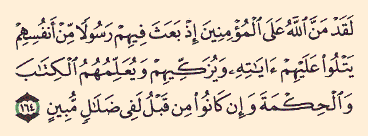 لَقَدْ مَنَّ اللَّهُ عَلَى الْمُؤْمِنِينَ إِذْ بَعَثَ فِيهِمْ رَسُولًا مِّنْ أَنفُسِهِمْ
يَتْلُوا۟ عَلَيْهِمْ ءَايَاتِهِۦ وَيُزَكِّيهِمْ وَيُعَلِّمُهُمُ الْكِتَٰبَ
وَالْحِكْمَةَ وَإِن كَانُوا۟ مِن قَبْلُ لَفِى ضَلَٰلٍ مُّبِينٍ ١٦٤